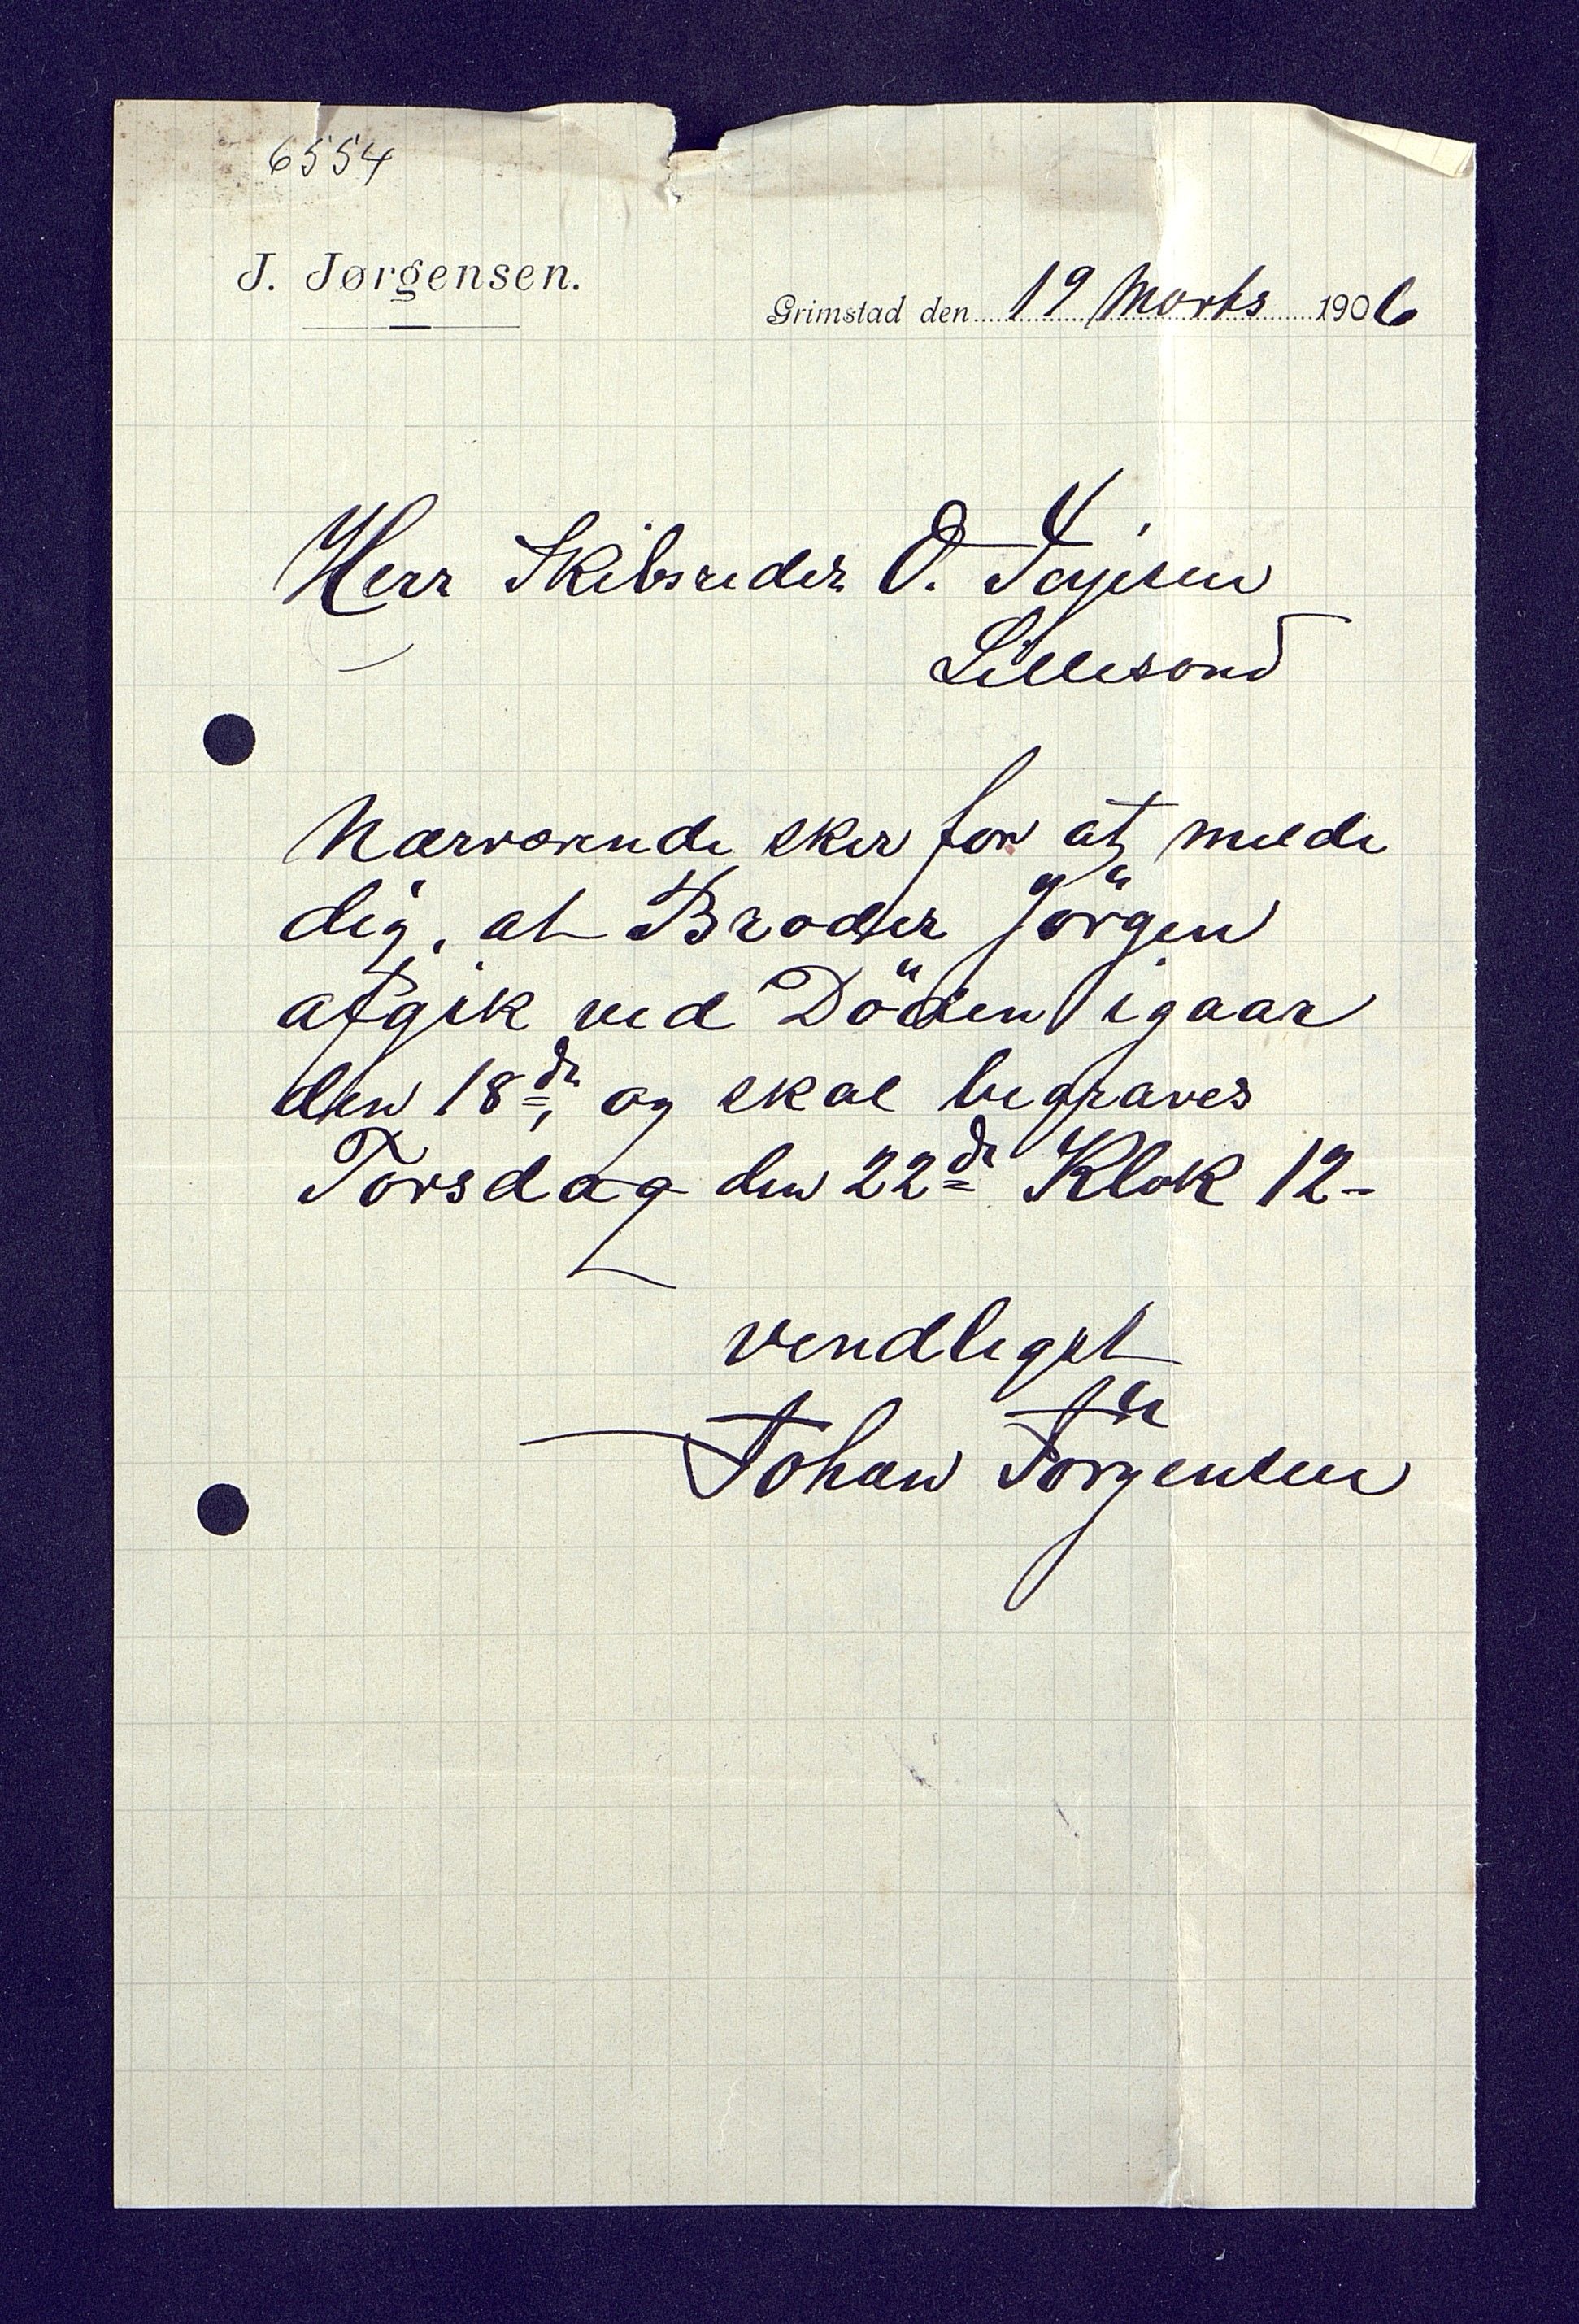 6554
J. Jørgensen.
Grimstad den 19 Marts 1906
Herr Skibsreder O. Tajesen
Lillesand
Nærværende sker for at melde
dig, at Broder Jörgen
afgik ved Döden igaar
den 18de, og skal begraves
Torsdag den 22de Klok 12-
vendligst
Johan Jörgensen